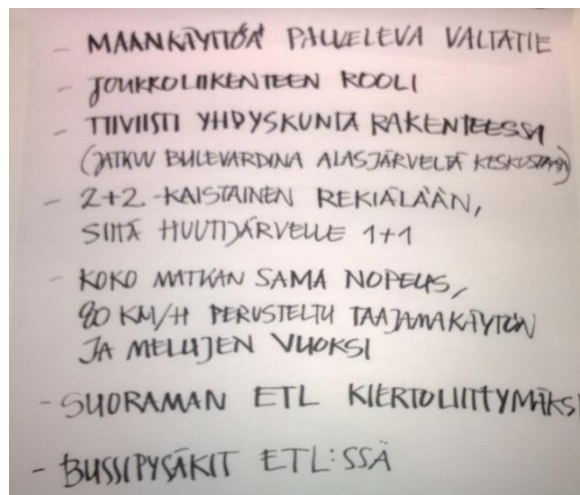 - MAANKÄYTTÖÄ PALVELEVA VALTATIE
- JOUKKOLIIKENTEEN ROOLI
- TIIVIISTI YHDYSKUNTA RAKENTEESSA
(JATKUU BULEVARDINA ALASJÄRVELTÄ KESKUSTAAN)
- 2+2-KAISTAINEN REKIÄLÄÄN,
SIITÄ HUUTIJÄRVELLE 1+1
- KOKO MATKAN SAMA NOPEUS,
80 KM/H PERUSTELTU TAAJAMAKÄYTÖN
JA MELUJEN VUOKSI
- SUORAMAN ETL KIERTOLIITTYMÄKSI
- BUSSIPYSÄKIT ETL:SSÄ